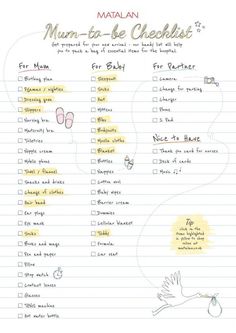 MATALAN
Mum-to-be Checklist
Get prepared for your new arrival - our handy list will help
you to pack a bag of essential items for the hospital.
For Mum
Birthing plan
Pyjamas / nighties
Dressing gown
Slippers
Nursing bra
Maternity bra
Toiletries
Nipple cream
Mobile phone
Towel / flannel
Snacks and drinks
Change of clothes
Hair band
Ear plugs
Eye mask
Socks
Books and mags
Pen and paper
Pillow
Stop watch
Contact lenses
Glasses
TENS machine
Hot water bottle
For Baby
Sleepsuit
Socks
Hat
Blanket
Bibs
Bodysuits
Muslin cloths
Blanket
Mittens
Nappies
Cotton wool
Baby wipes
Barrier cream
Dummies
Cellular blanket
Teddy
Formula
Car seat
For Partner
Camera
Change for parking
Charger
Phone
I-Pad
Nice to Have
Thank you card for nurses
Deck of cards
Music
Tip
click on the
items highlighted
in yellow to shop
online at
matalan.co.uk